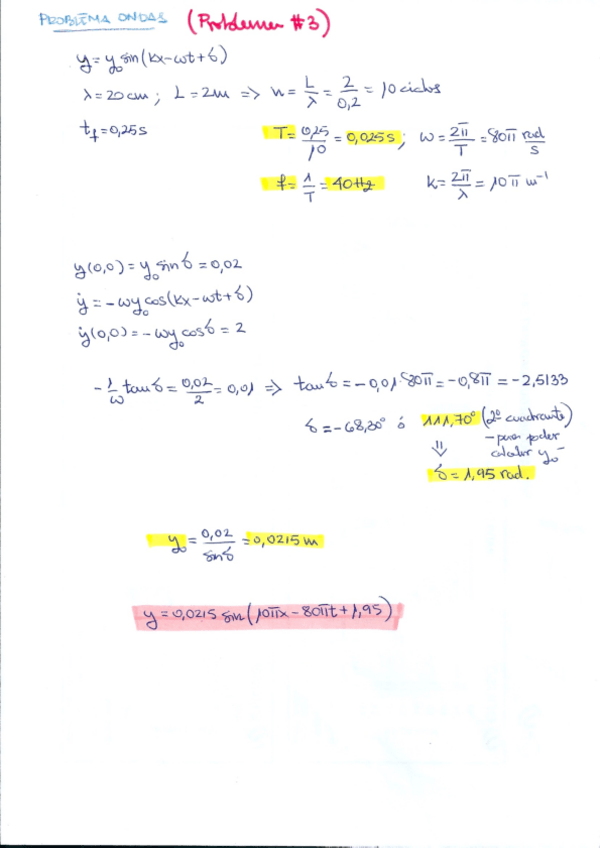 PROBLEMA ONDAS (Problema #3)
y = y₀ sin(kx-ωt+δ)
λ = 20 cm ; L = 2m ⇒ n = L/λ = 2/0,2 = 10 ciclos
t_f = 0,25 s
T = 0,25/10 = 0,025 s ; ω = 2π/T = 80π rad/s
f = 1/T = 40 Hz k = 2π/λ = 10π m⁻¹
y(0,0) = y₀ sin δ = 0,02
ẏ = -ωy₀ cos(kx-ωt+δ)
ẏ(0,0) = -ωy₀ cos δ = 2
-1/ω tan δ = 0,02/2 = 0,01 ⇒ tan δ = -0,01·80π = -0,8π = -2,5133
δ = -68,30° ó 111,70° (2º cuadrante)
-para poder
calcular y₀-
⇓
δ = 1,95 rad.
y₀ = 0,02/sin δ = 0,0215 m
y = 0,0215 sin(10πx - 80πt + 1,95)